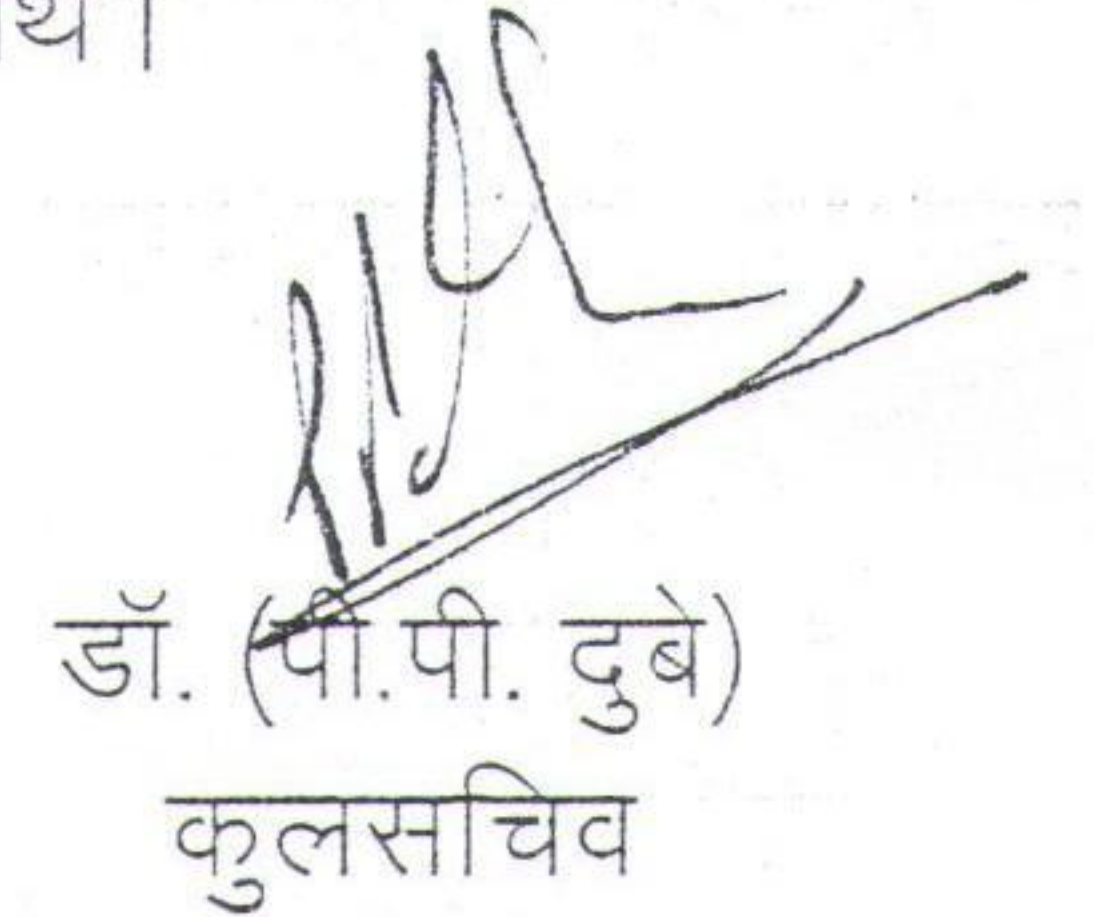 डॉ. (पी.पी. दुबे)
कुलसचिव